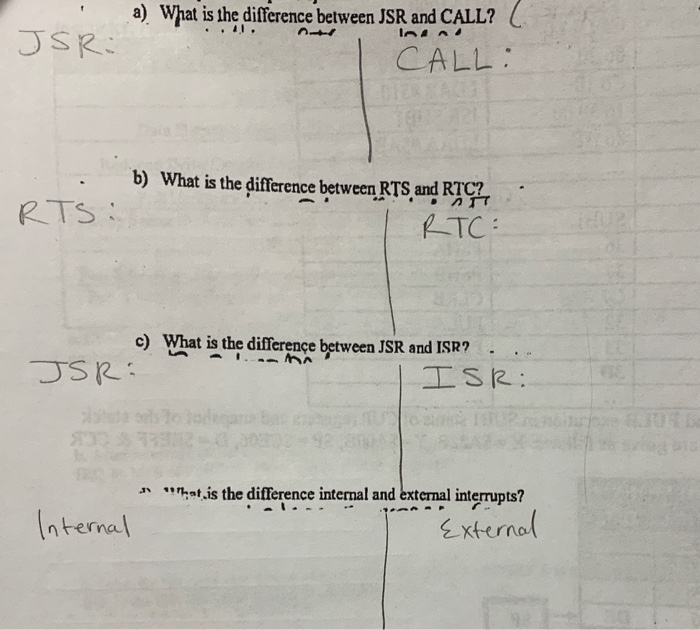 a) What is the difference between JSR and CALL?
JSR:
CALL:
b) What is the difference between RTS and RTC?
RTS:
RTC:
c) What is the difference between JSR and ISR?
JSR:
ISR:
What is the difference internal and external interrupts?
Internal
External